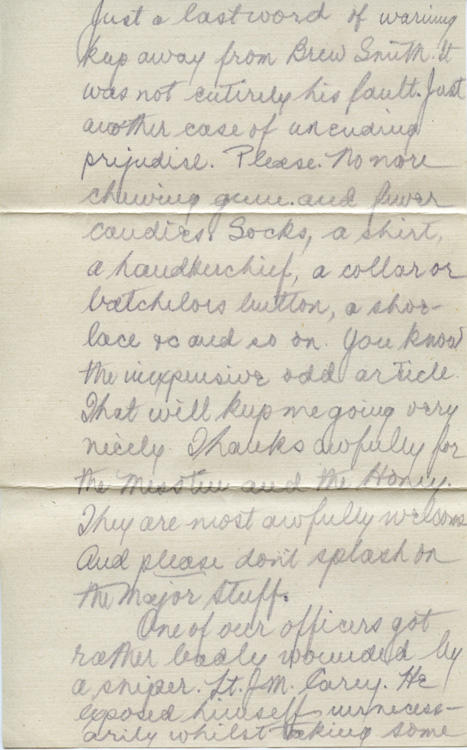 Just a last word of warning
keep away from Brew Smith. It
was not entirely his fault. Just
another case of unending
prejudise. Please. No more
chewing gum. and fewer
candies. Socks, a shirt,
a handkerchief, a collar or
batchelors button, a shoe-
lace &c and so on. You know
the inexpensive odd article.
That will keep me going very
nicely. Thanks awfully for
the Mess tin and the Honey.
They are most awfully welcome
And please don't splash on
the Major stuff.
One of our officers got
rather badly wounded by
a sniper. Lt. J.M. Carey. He
exposed himself unnecess-
arily whilst taking some